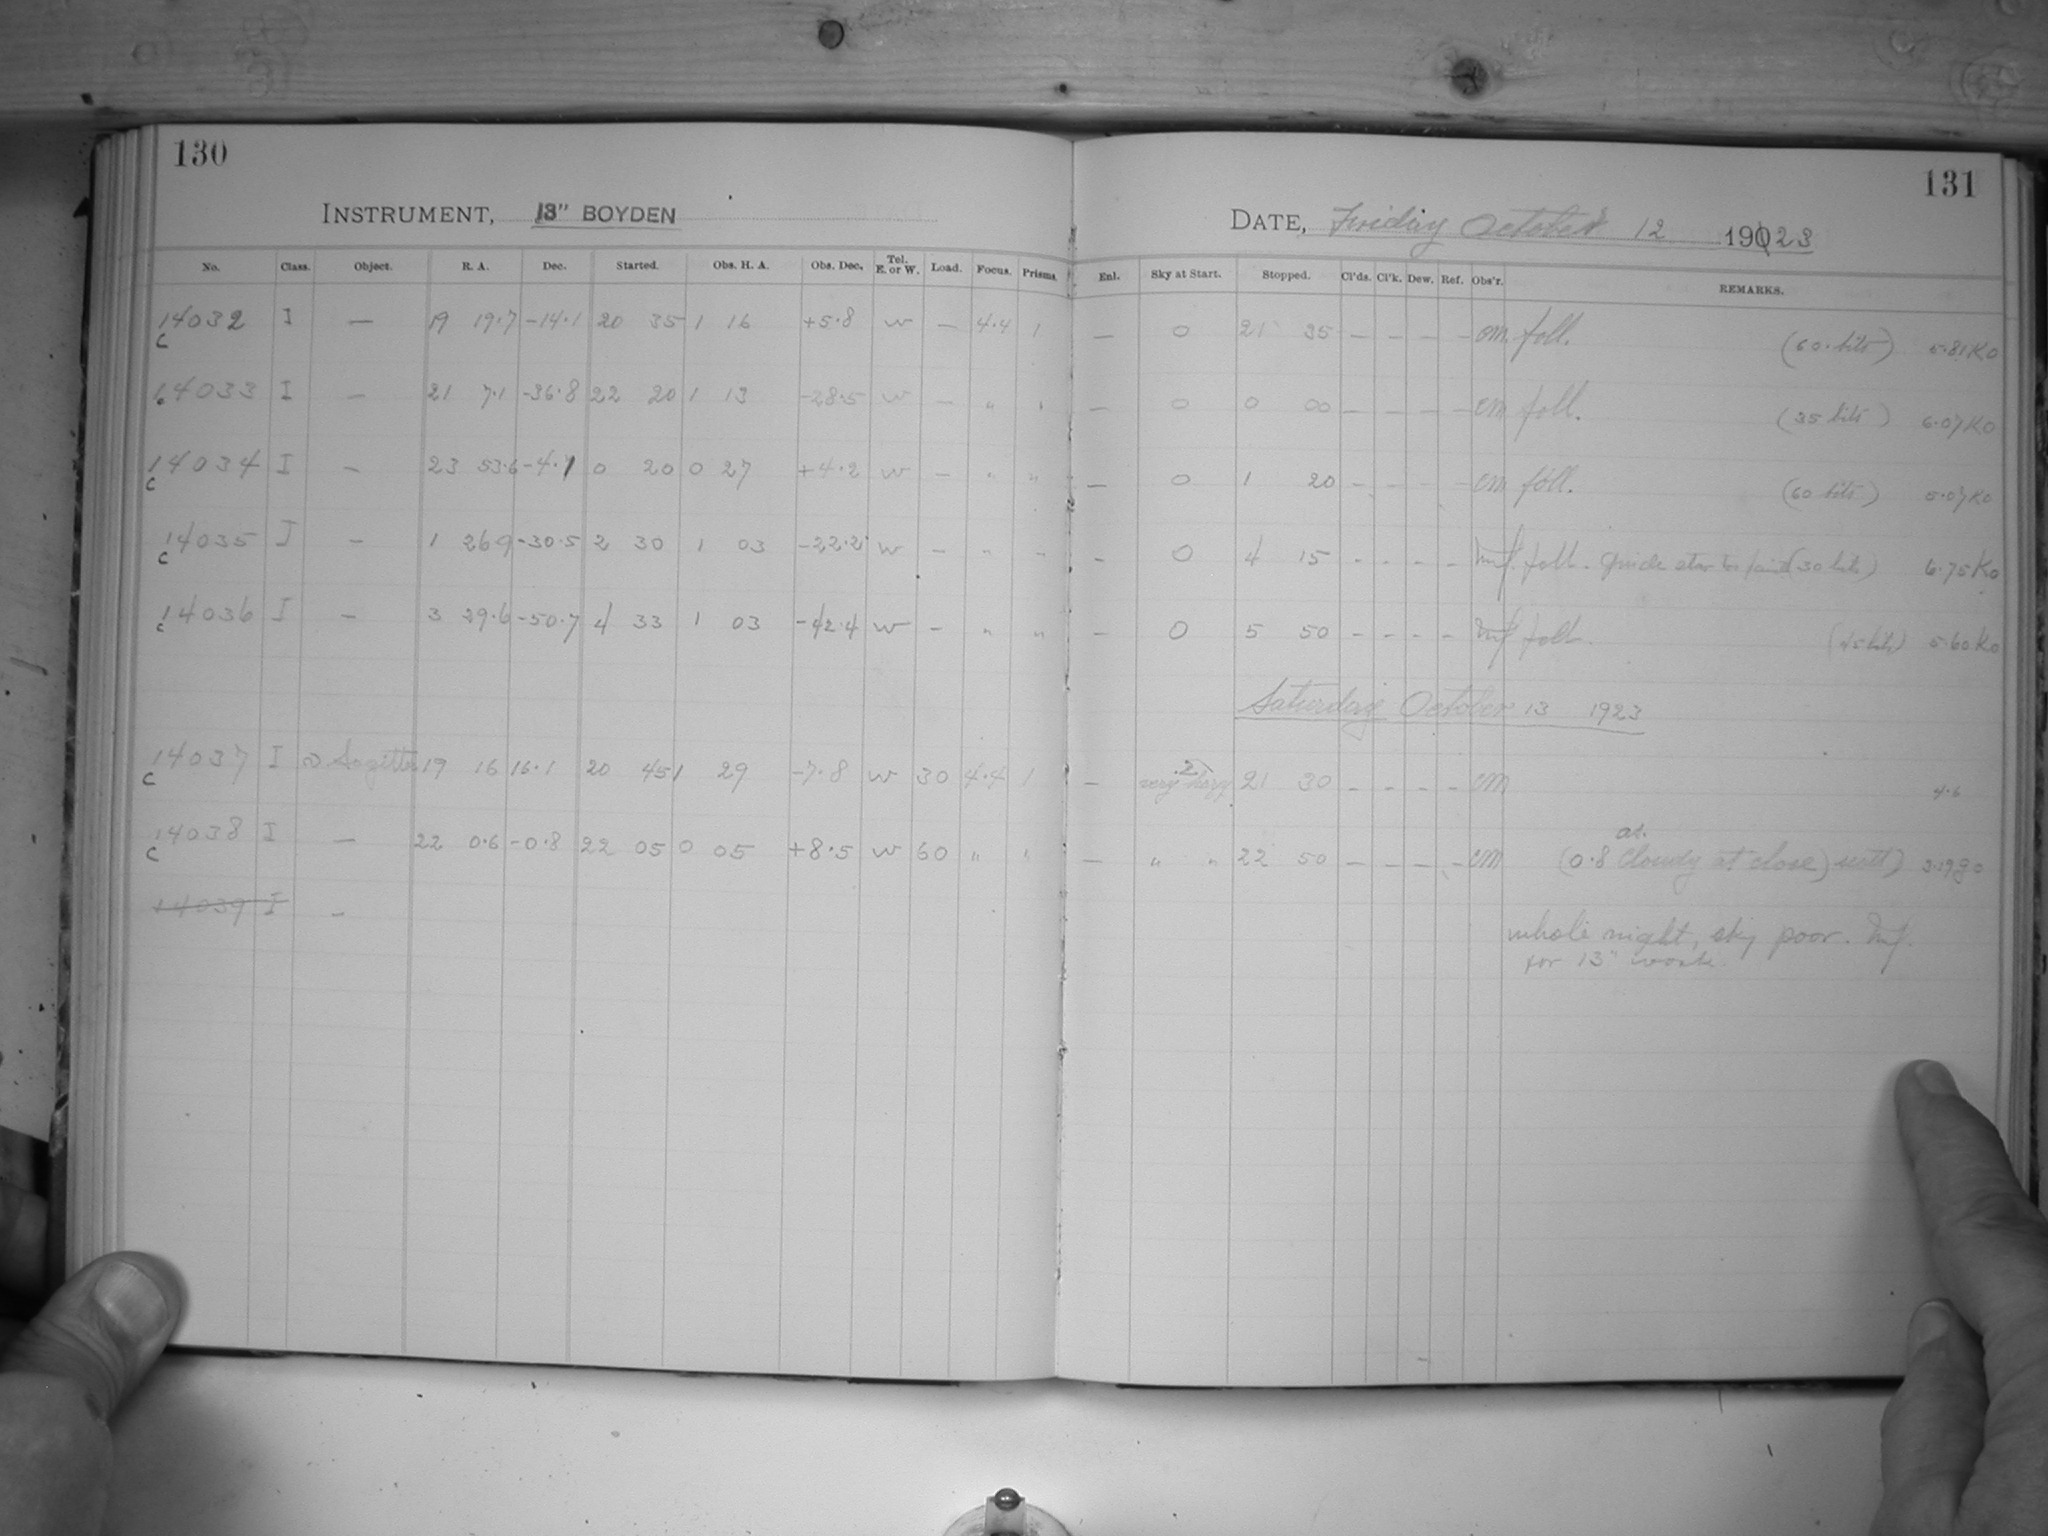 130
INSTRUMENT, 13" BOYDEN
No. Class. Object. R. A. Dec. Started. Obs. H. A. Obs. Dec. Tel. E. or W. Load. Focus. Prisms.
C 14032 I — 19 19.7 -14.1 20 35 1 16 +5.8 W — 4.4 1
C 14033 I — 21 7.1 -36.8 22 20 1 13 -28.5 W — " "
C 14034 I — 23 53.6 -4.1 0 20 0 27 +4.2 W — " "
C 14035 I — 1 26.9 -30.5 2 30 1 03 -22.2 W — " "
C 14036 I — 3 29.6 -50.7 4 33 1 03 -42.4 W — " "
C 14037 I Sagittae 19 16 16.1 20 45 1 29 -7.8 W 30 4.4 1
C 14038 I — 22 0.6 -0.8 22 05 0 05 +8.5 W 60 " "
14039 I —
131
DATE, Friday October 12 1923
Enl. Sky at Start. Stopped. Cl'ds. Cl'k. Dew. Ref. Obs'r. REMARKS.
— 0 21 35 — — — — CM. foll. (60. bits) 5.81 K0
— 0 0 00 — — — — CM foll. (35 bits) 6.07 K0
— 0 1 20 — — — — CM foll. (60 bits) 5.07 K0
— 0 4 15 — — — — Mf. foll. Guide star too faint (30 bits) 6.75 K0
— 0 5 50 — — — — Mf foll. (45 bits) 5.60 K0
Saturday October 13 1923
— .2 very hazy 21 30 — — — — CM 4.6
— " " 22 50 — — — — CM (0.8 Cloudy at close) 3.19 g0
whole night, sky poor. Mf.
for 13" work.